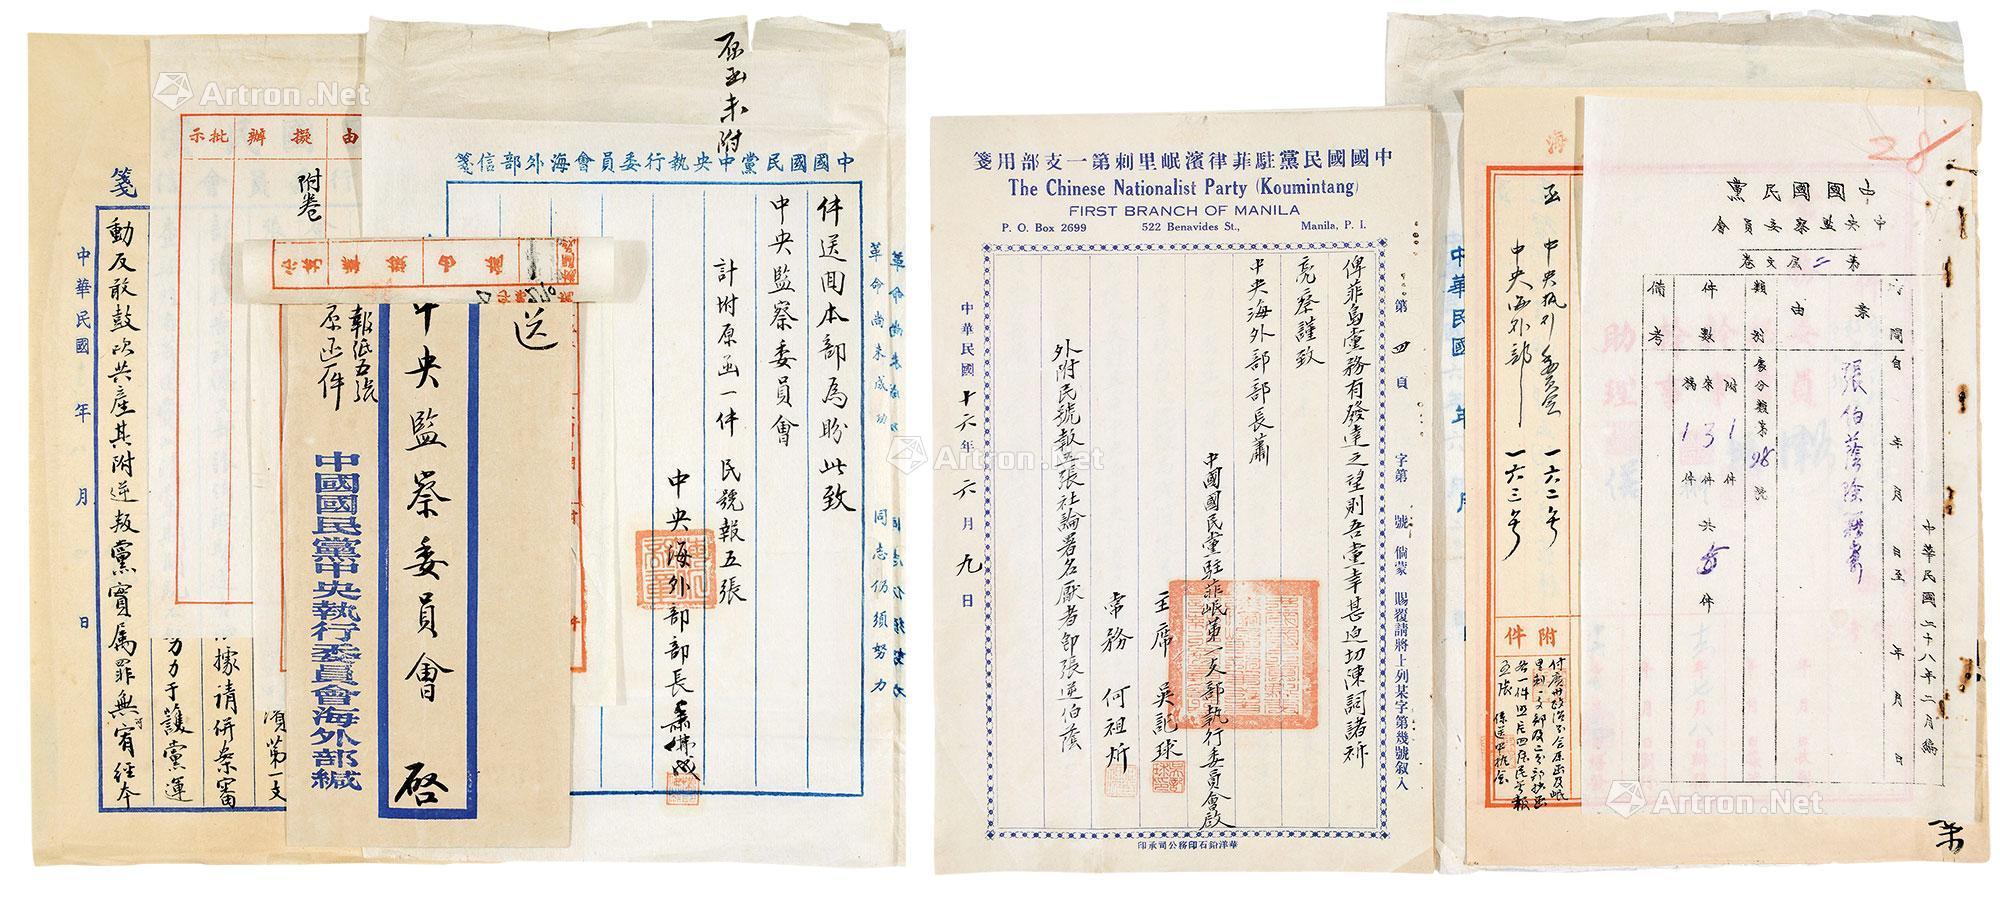 原函未附
中國國民黨中央執行委員會海外部信箋
革命尚未成功
同志仍須努力
件送回本部為盼此致
中央監察委員會
計附原函一件 民號報五張
中央海外部部長蕭佛成
送
中央監察委員會 啓
中國國民黨中央執行委員會海外部緘
報紙五張
原函一件
由
擬辦
批示
附卷
箋
動反敢鼓吹共產其附逆叛黨實属罪無可宥經本
中華民國 年 月 日
須第一支
據請併案審
力力于護黨運
中國國民黨駐菲律濱岷里刺第一支部用箋
The Chinese Nationalist Party (Koumintang)
FIRST BRANCH OF MANILA
P. O. Box 2699 522 Benavides St., Manila, P. I.
第四頁 字第 號 倘蒙 賜覆請將上列某字第幾號叙入
俾菲島黨務有發達之望則吾黨幸甚迫切陳詞諸祈
亮察謹致
中央海外部部長蕭
中國國民黨駐菲岷第一支部執行委員會啟
主席 吳記球
常務 何祖炘
外附民號報五張社論署名厭者卽張逆伯蔭
中華民國十六年六月九日
華洋鉛石印務公司承印
海
函 中央執行委員會 一六二号
中央海外部 一六三号
附件
28
中國國民黨
中央監察委員會
第二屆文卷
中華民國二十八年二月編
時間 自 年 月 日至 年 月 日
案由 張伯蔭
類別 處分類第98號
件數 附1件 來3件 稿1件 共5件
備考
Artron.Net
Artron.Net
Artron.Net